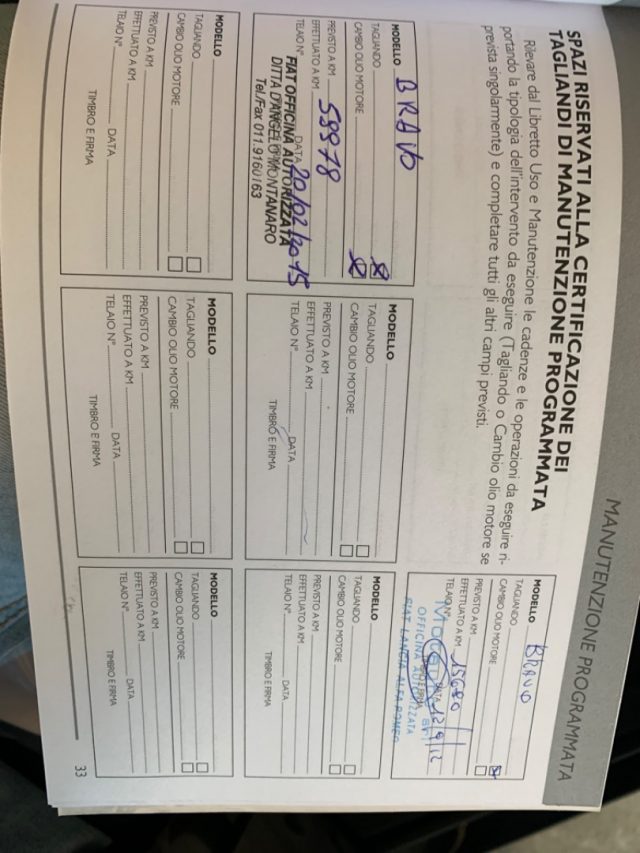 MANUTENZIONE PROGRAMMATA
SPAZI RISERVATI ALLA CERTIFICAZIONE DEI
TAGLIANDI DI MANUTENZIONE PROGRAMMATA
Rilevare dal Libretto Uso e Manutenzione le cadenze e le operazioni da eseguire ri-
portando la tipologia dell'intervento da eseguire (Tagliando o Cambio olio motore se
prevista singolarmente) e completare tutti gli altri campi previsti.
MODELLO BRAVO
TAGLIANDO
CAMBIO OLIO MOTORE
PREVISTO A KM
EFFETTUATO A KM 15680
TELAIO N° DATA 12/9/12
OFFICINA AUTORIZZATA
FIAT LANCIA ALFA ROMEO
MODELLO BRAVO
TAGLIANDO
CAMBIO OLIO MOTORE
PREVISTO A KM
EFFETTUATO A KM 59978
TELAIO N° DATA 20/02/2015
FIAT OFFICINA AUTORIZZATA
DITTA D'ANGELO MONTANARO
Tel./Fax 011.9160163
MODELLO
TAGLIANDO
CAMBIO OLIO MOTORE
PREVISTO A KM
EFFETTUATO A KM
TELAIO N° DATA
TIMBRO E FIRMA
MODELLO
TAGLIANDO
CAMBIO OLIO MOTORE
PREVISTO A KM
EFFETTUATO A KM
TELAIO N° DATA
TIMBRO E FIRMA
MODELLO
TAGLIANDO
CAMBIO OLIO MOTORE
PREVISTO A KM
EFFETTUATO A KM
TELAIO N° DATA
TIMBRO E FIRMA
MODELLO
TAGLIANDO
CAMBIO OLIO MOTORE
PREVISTO A KM
EFFETTUATO A KM
TELAIO N° DATA
TIMBRO E FIRMA
MODELLO
TAGLIANDO
CAMBIO OLIO MOTORE
PREVISTO A KM
EFFETTUATO A KM
TELAIO N° DATA
TIMBRO E FIRMA
33